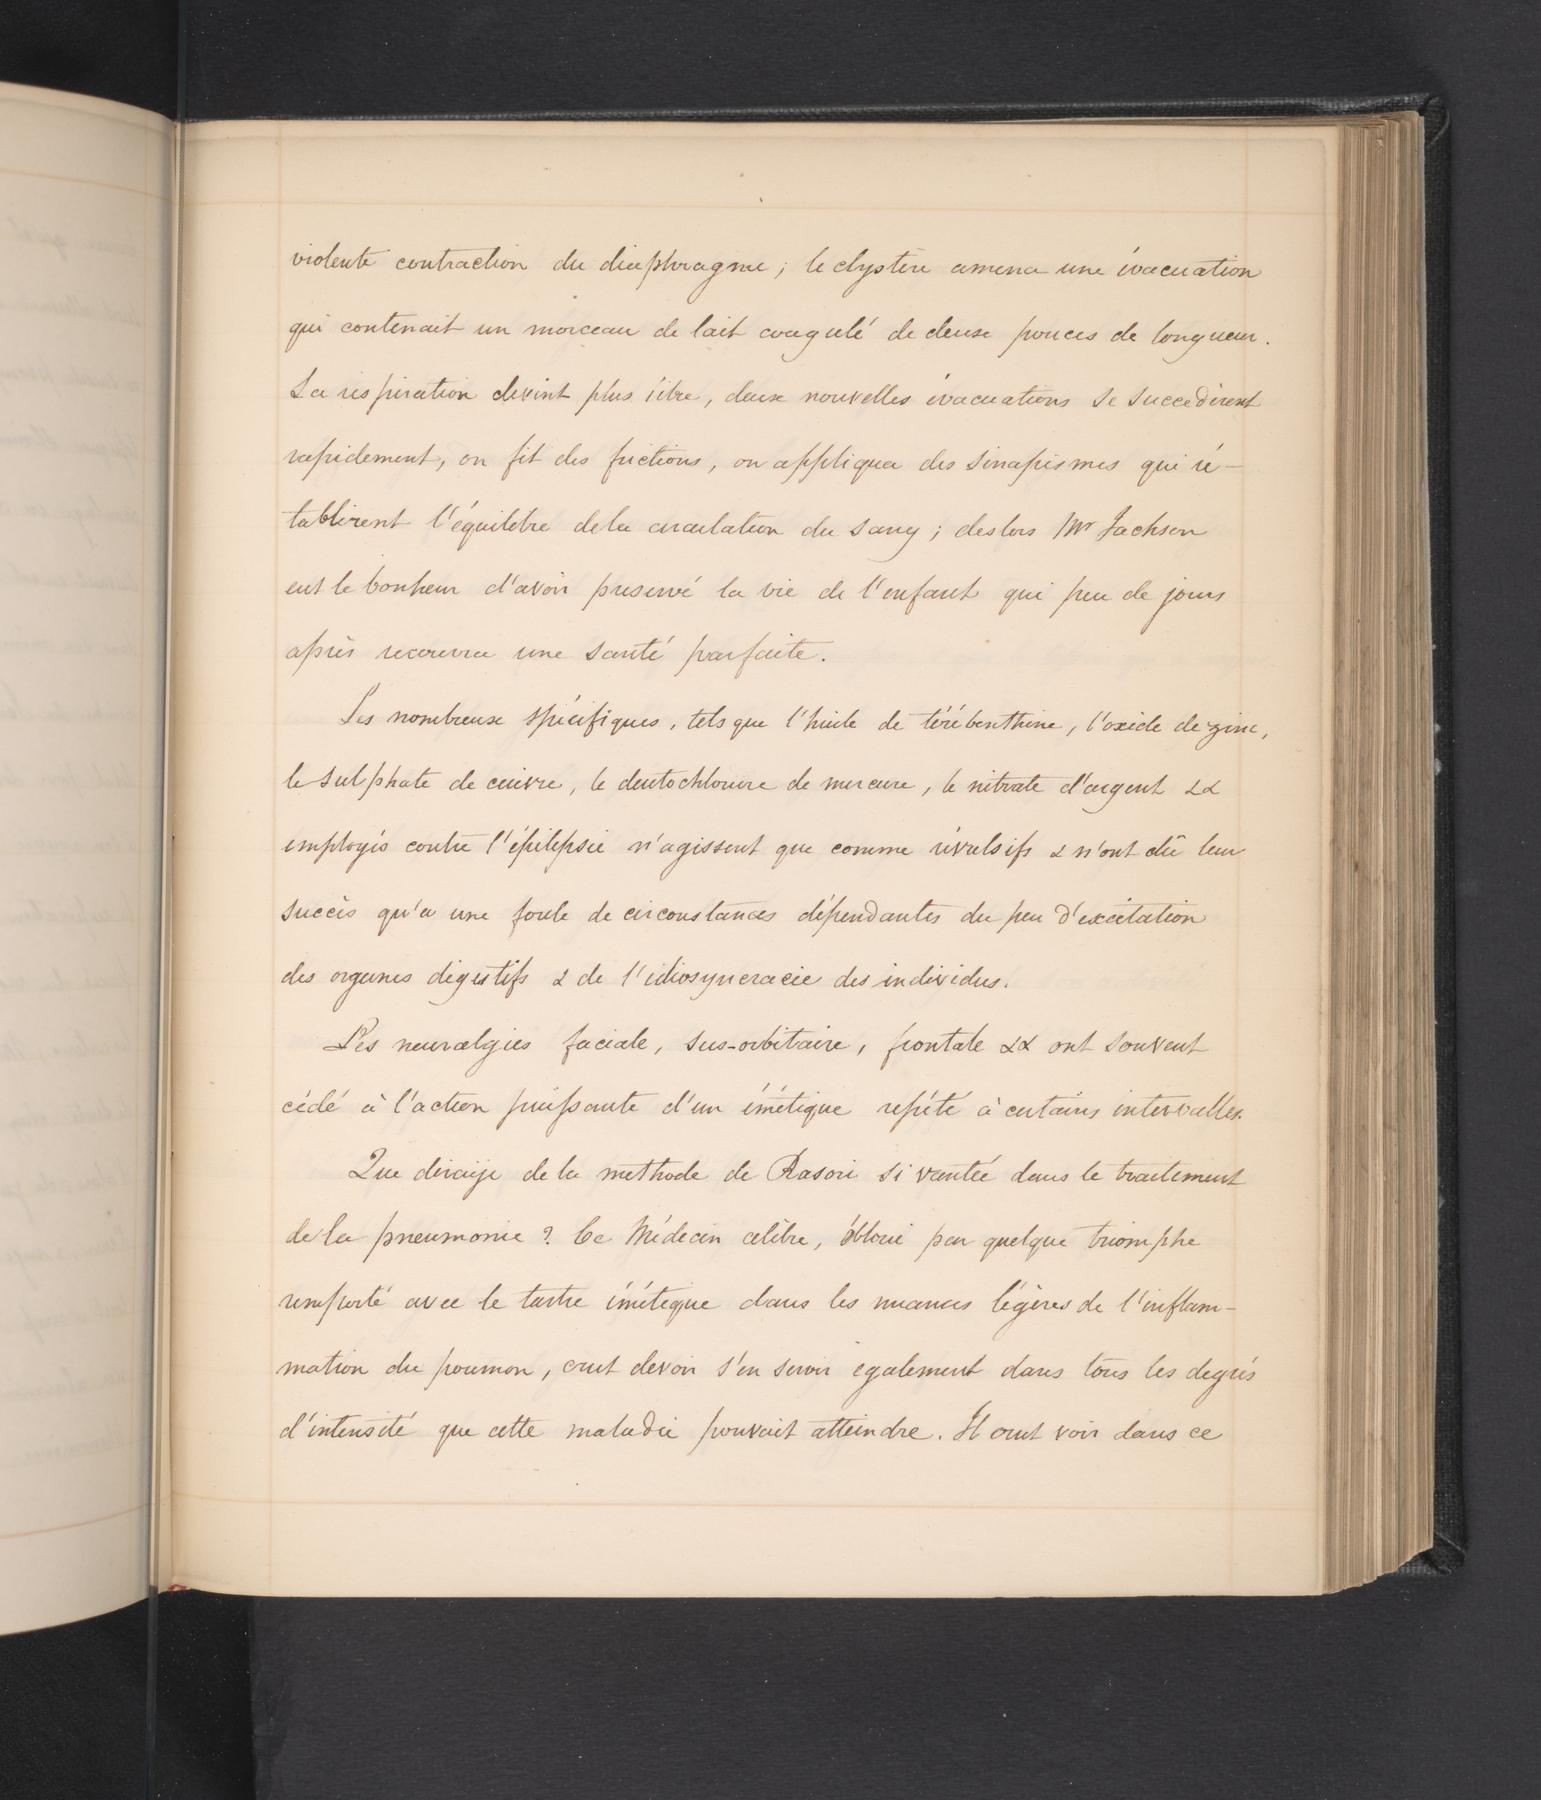 violente contraction du diaphragme ; le clystère amena une évacuation
qui contenait un morceau de lait coagulé de deux pouces de longueur.
La respiration devint plus libre, deux nouvelles évacuations se succedèrent
rapidement, on fit des frictions, on appliqua des sinapismes qui ré-
tablirent l'équilibre de la circulation du sang ; deslors Mr Jackson
eut le bonheur d'avoir preservé la vie de l'enfant qui peu de jours
après recouvra une santé parfaite.
Les nombreux spécifiques, tels que l'huile de térébenthine, l'oxide de zinc,
le sulphate de cuivre, le deutochlorure de mercure, le nitrate d'argent &&
employés contre l'épilepsie n'agissent que comme révulsifs & n'ont dû leur
succès qu'a une foule de circonstances dépendantes du peu d'excitation
des organes digestifs & de l'idiosyncracie des individus.
Les neuralgies faciale, sus-orbitaire, frontale && ont souvent
cédé à l'action puissante d'un émétique repété à certains intervalles.
Que diraije de la methode de Rasori si vantée dans le traitement
de la pneumonie ? Ce Médecin célèbre, ébloui par quelque triomphe
remporté avec le tartre émétique dans les nuances légères de l'inflam-
mation du poumon, crut devoir s'en servir également dans tous les degrés
d'intensité que cette maladie pouvait atteindre. Il crut voir dans ce